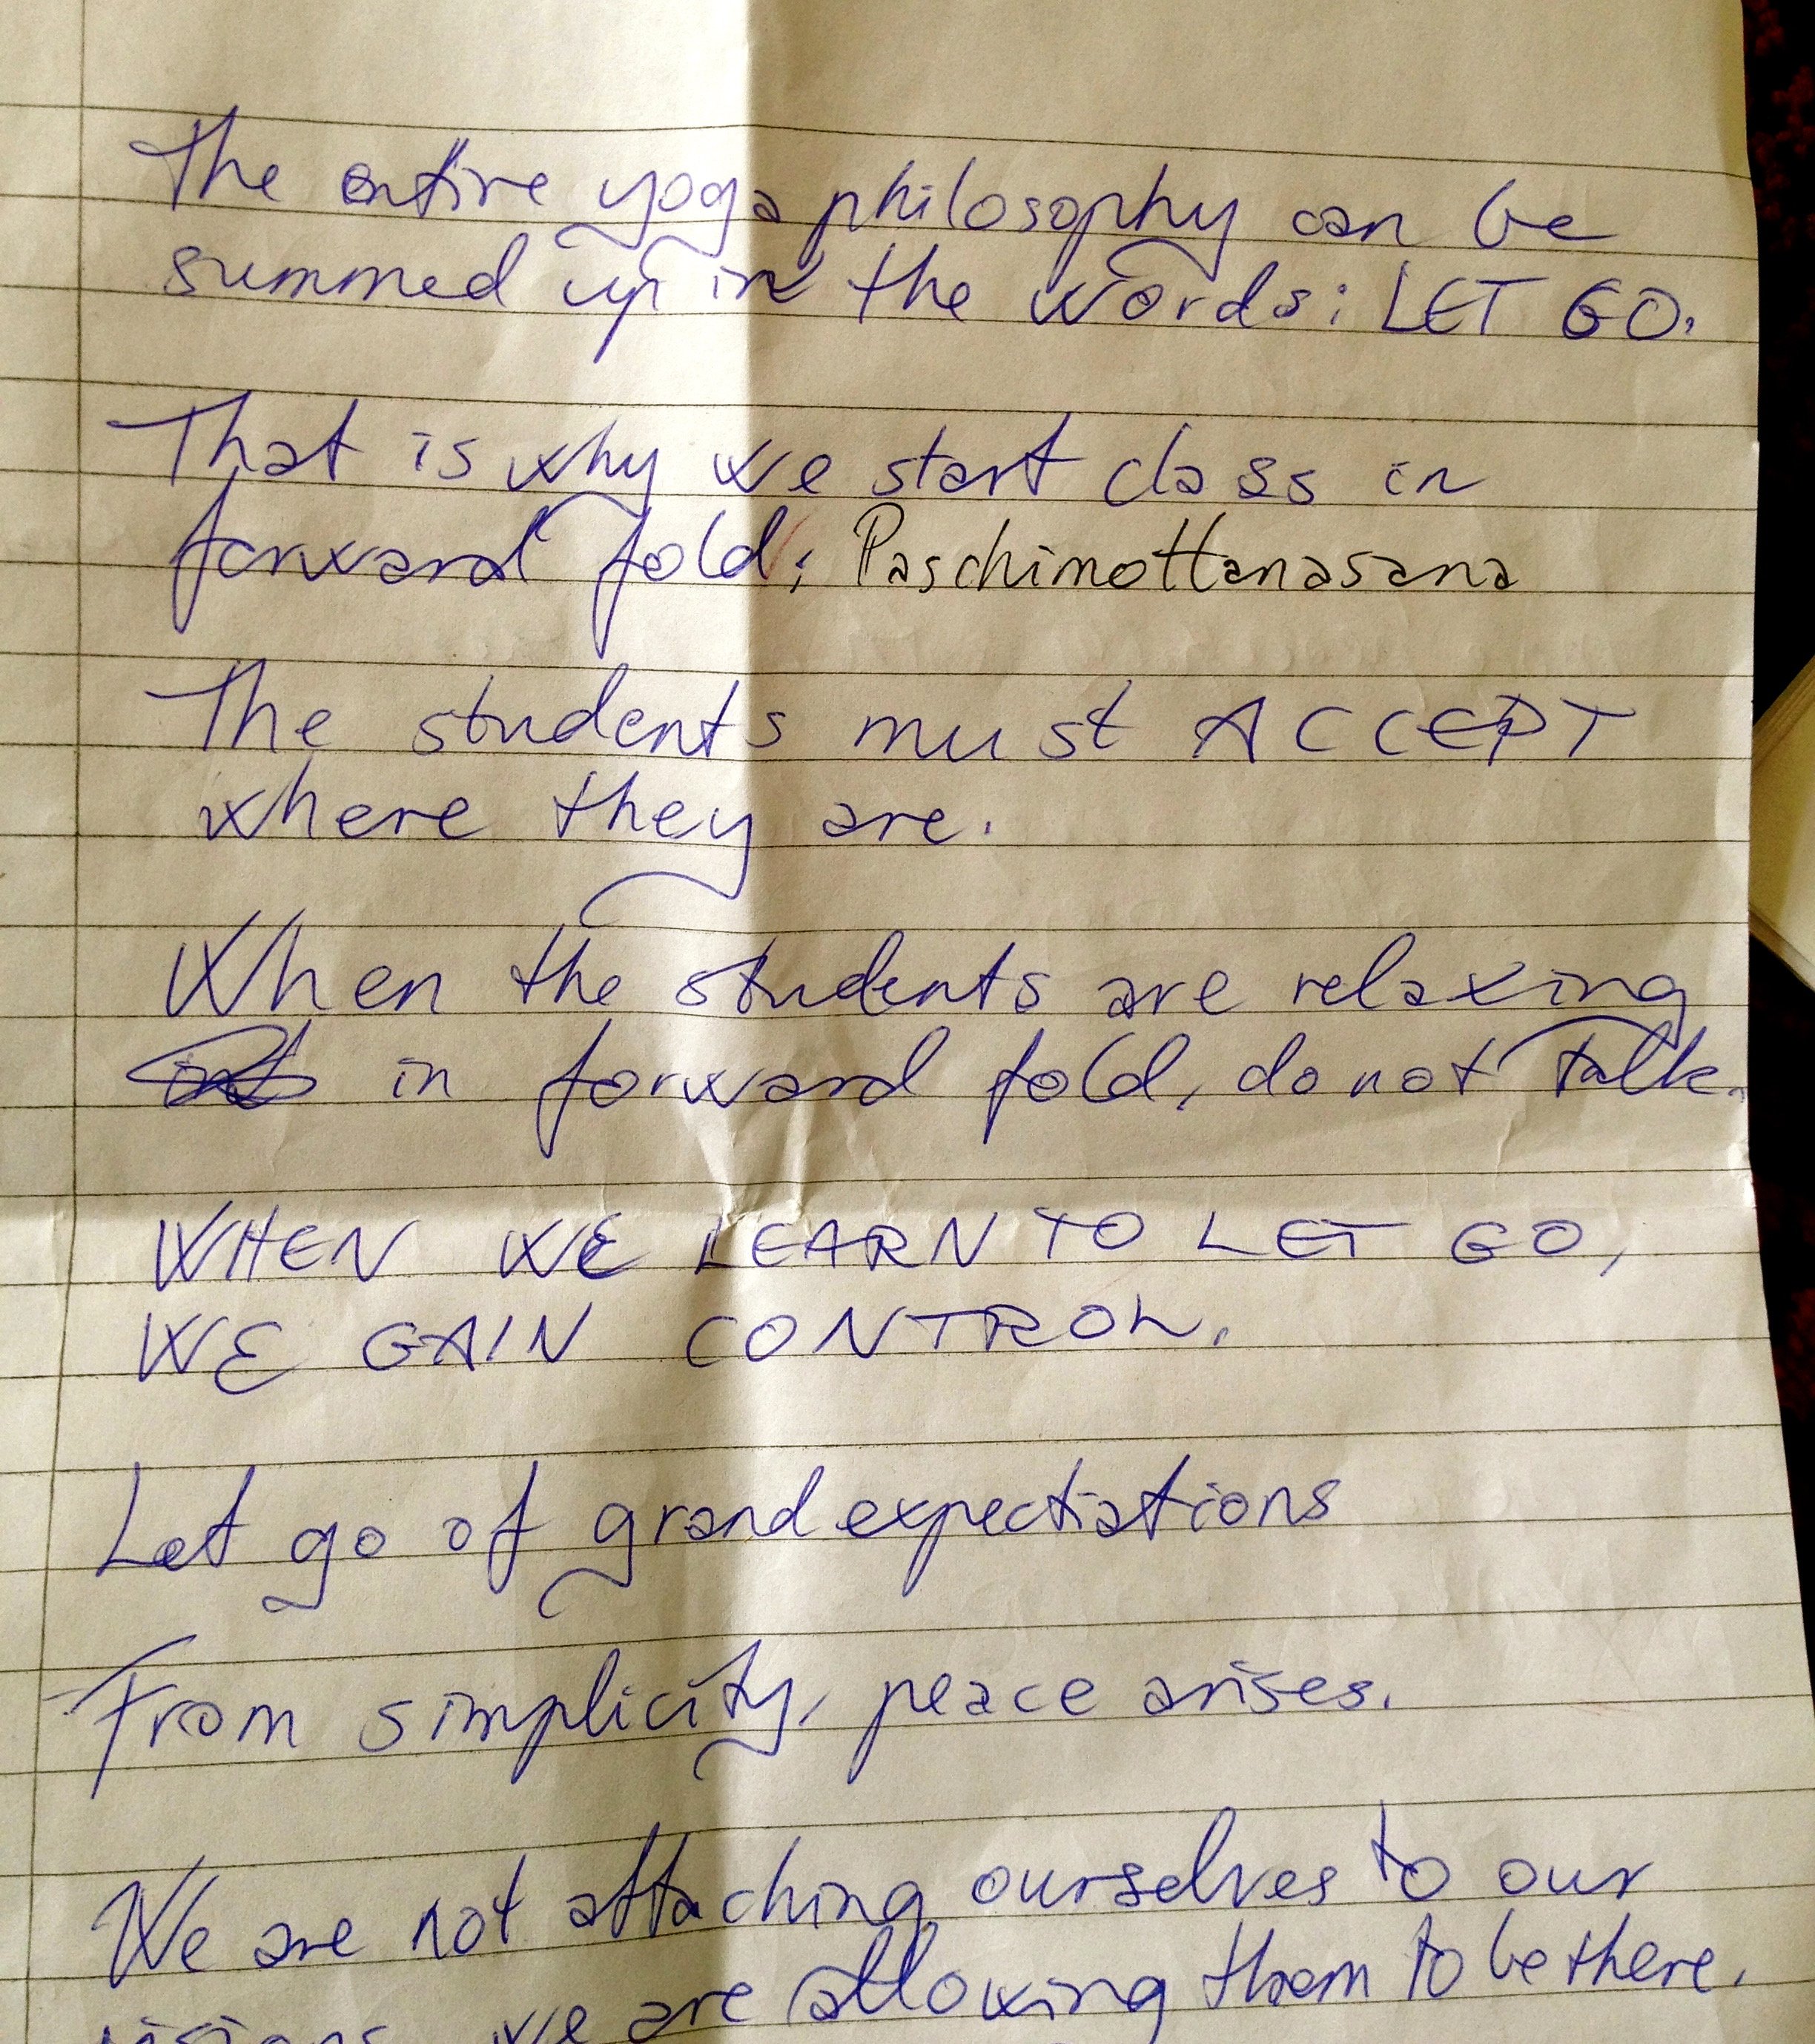 The entire yoga philosophy can be
summed up in the words: LET GO.
That is why we start class in
forward fold: Paschimottanasana
The students must ACCEPT
where they are.
When the students are relaxing
in forward fold, do not talk.
WHEN WE LEARN TO LET GO,
WE GAIN CONTROL.
Let go of grand expectiations
From simplicity, peace arises.
We are not attaching ourselves to our
visions, we are allowing them to be there.